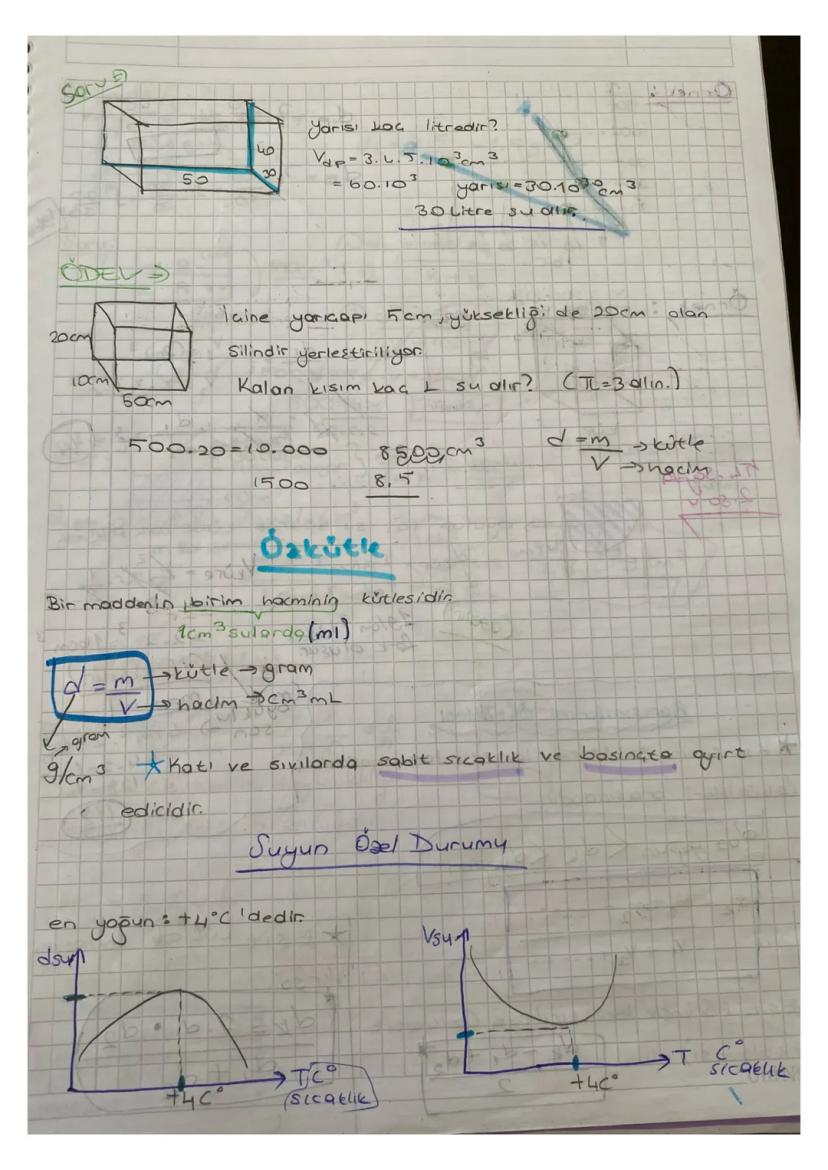 Soru⇒
40
50
30
Yarısı kaç litredir?
Vdp = 3.4.5.10³cm³
= 60.10³ yarısı = 30.10³ cm³
30 Litre su alır.
ÖDEV ⇒
20cm
10cm
50cm
İçine yarıçapı 5cm, yüksekliği de 20cm olan
silindir yerleştiriliyor.
Kalan kısım kaç L su alır? (π=3 alın.)
500.20=10.000 8500cm³
1500 8,5
d = m → kütle
V → hacim
Özkütle
Bir maddenin birim hacminin kütlesidir.
1cm³ sularda (ml)
d = m → kütle → gram
V → hacim → cm³ mL
gram
g/cm³ ★ Katı ve sıvılarda sabit sıcaklık ve basınçta ayırt
edicidir.
Suyun Özel Durumu
en yoğun : +4°C 'dedir.
dsu
+4C°
T C°
(sıcaklık)
Vsu
+4C°
T C°
sıcaklık